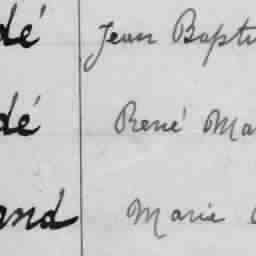 dé Jean Bapti
dé René Ma
and Marie